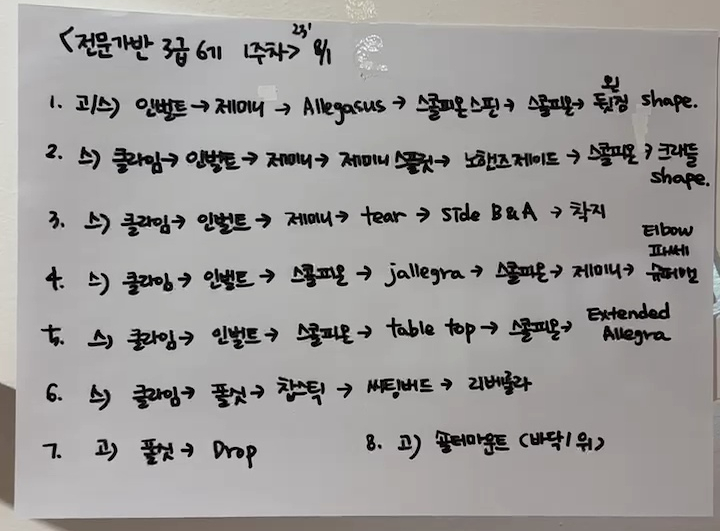 <전문가반 3급 6기 1주차> 23' 8/1
1. 고/스) 인벌트→제미니→ Allegasus → 스콜피온스핀→ 스콜피온→ 왼 뒷점 shape.
2. 스) 클라임→ 인벌트→ 제미니→ 제미니 스플릿→ 노핸즈제이드→ 스콜피온→ 크래들 shape.
3. 스) 클라임→ 인벌트→ 제미니→ tear → side B&A → 착지
4. 스) 클라임→ 인벌트→ 스콜피온→ jallegra→ 스콜피온→ 제미니→ Elbow 파쎄 슈퍼맨
5. 스) 클라임→ 인벌트→ 스콜피온→ table top→ 스콜피온→ Extended Allegra
6. 스) 클라임→ 폴싯→ 찹스틱 → 씨팅버드 → 리베룰라
7. 고) 폴싯→ Drop
8. 고) 숄더마운트 (바닥/위)